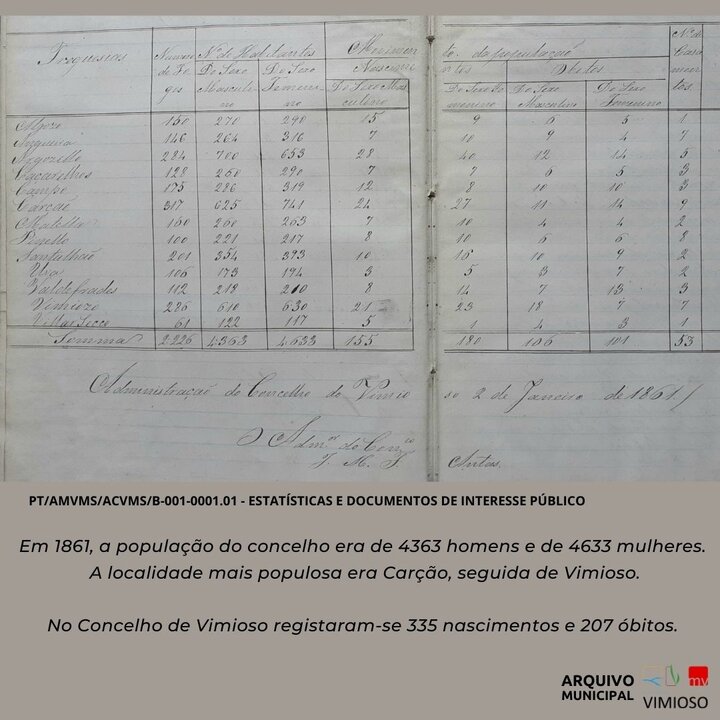 Freguesias Numero de Fogos Nº de Habitantes Do Sexo Masculino Do Sexo Femenino Movimento da população Nascimentos Do Sexo Masculino Do Sexo Femenino Obitos Do Sexo Masculino Do Sexo Femenino Nº de Casamentos
Algozo 150 270 290 15 9 6 5 1
Angueira 146 264 316 7 10 9 4 7
Argozello 284 700 653 28 40 12 14 5
Caçarelhos 128 260 290 7 7 6 5 3
Campo 175 286 319 12 8 10 10 3
Carção 317 625 741 24 27 11 14 9
Matella 160 260 263 7 10 4 4 2
Pinello 100 221 217 8 10 6 6 8
Santulhão 201 354 393 10 16 10 9 2
Uva 106 173 194 3 5 3 7 2
Valdefrades 112 218 210 8 14 7 13 3
Vimiozo 286 610 630 21 23 18 7 7
Villar Secco 61 122 117 5 1 4 3 1
Somma 2.226 4.363 4.633 155 180 106 101 53
Administração do Concelho do Vimioso 2 de Janeiro de 1861
O Admor do Conco
J. M. Antas.
PT/AMVMS/ACVMS/B-001-0001.01 - ESTATÍSTICAS E DOCUMENTOS DE INTERESSE PÚBLICO
Em 1861, a população do concelho era de 4363 homens e de 4633 mulheres.
A localidade mais populosa era Carção, seguida de Vimioso.
No Concelho de Vimioso registaram-se 335 nascimentos e 207 óbitos.
ARQUIVO
MUNICIPAL
mv
VIMIOSO